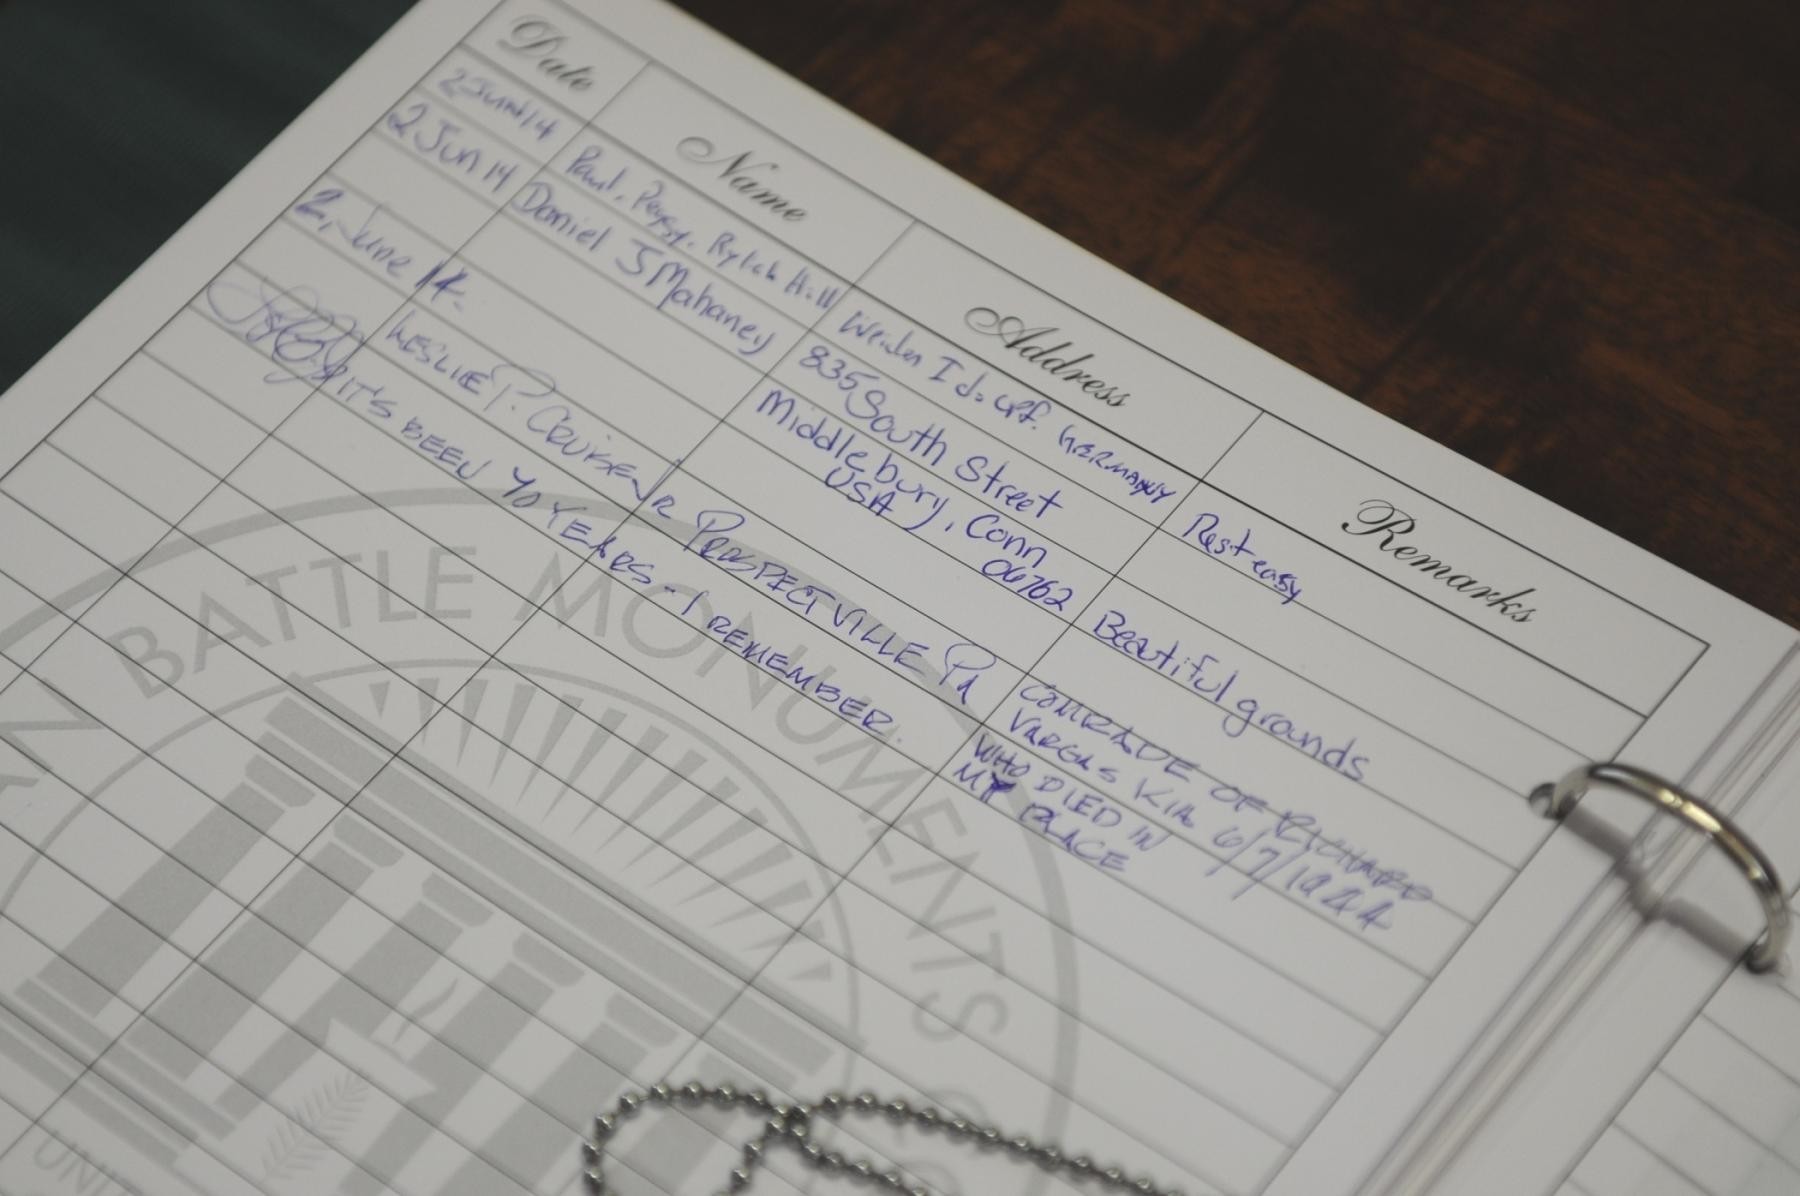 Date Name Address Remarks
2 Jun 14 Paul, Peggy, Hill GERMANY Rest easy
2 Jun 14 Daniel J Mahaney 835 South Street Beautiful grounds
Middlebury, Conn
USA 06762
2, June 14. LESLIE P. CRUISE JR PROSPECTVILLE PA COMRADE OF RICHARD
VARGAS KIA 6/7/1944
IT'S BEEN 70 YEARS - I REMEMBER. WHO DIED IN
MY PLACE
BATTLE MONUMENTS
UNI